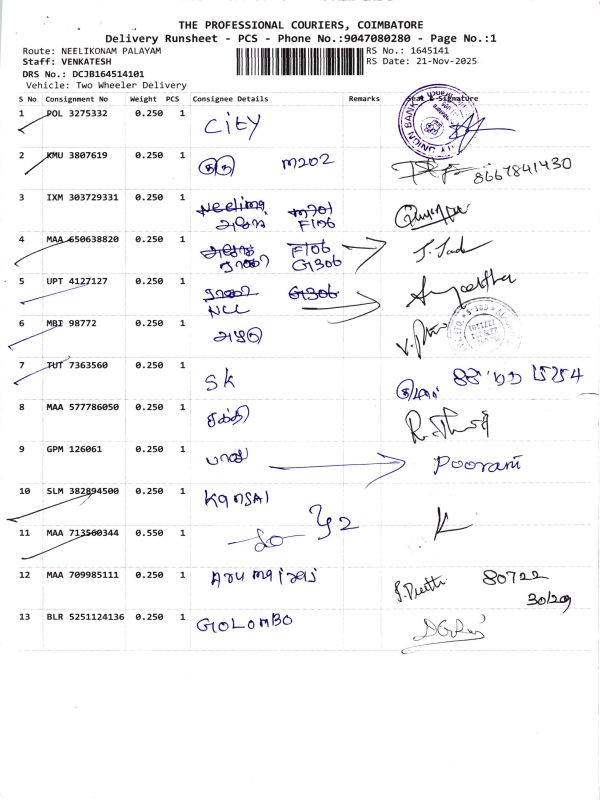 THE PROFESSIONAL COURIERS, COIMBATORE
Delivery Runsheet - PCS - Phone No.:9047080280 - Page No.:1
Route: NEELIKONAM PALAYAM
RS No.: 1645141
Staff: VENKATESH
RS Date: 21-Nov-2025
DRS No.: DCJB164514101
Vehicle: Two Wheeler Delivery
S No Consignment No Weight PCS Consignee Details Remarks Seal & Signature
1 POL 3275332 0.250 1 CITY
2 KMU 3807619 0.250 1 M202 8667841430
3 IXM 303729331 0.250 1 Neelima M701
F106
4 MAA 650638820 0.250 1 F106
G1306
5 UPT 4127127 0.250 1 G1306
NCC
6 MBI 98772 0.250 1
7 TUT 7363560 0.250 1 SK
8 MAA 577786050 0.250 1 சக்தி
9 GPM 126061 0.250 1 பாலு Poorani
10 SLM 382894500 0.250 1 KANSAI
11 MAA 713560344 0.550 1
12 MAA 709985111 0.250 1 80722
30129
13 BLR 5251124136 0.250 1 GOLOMBO